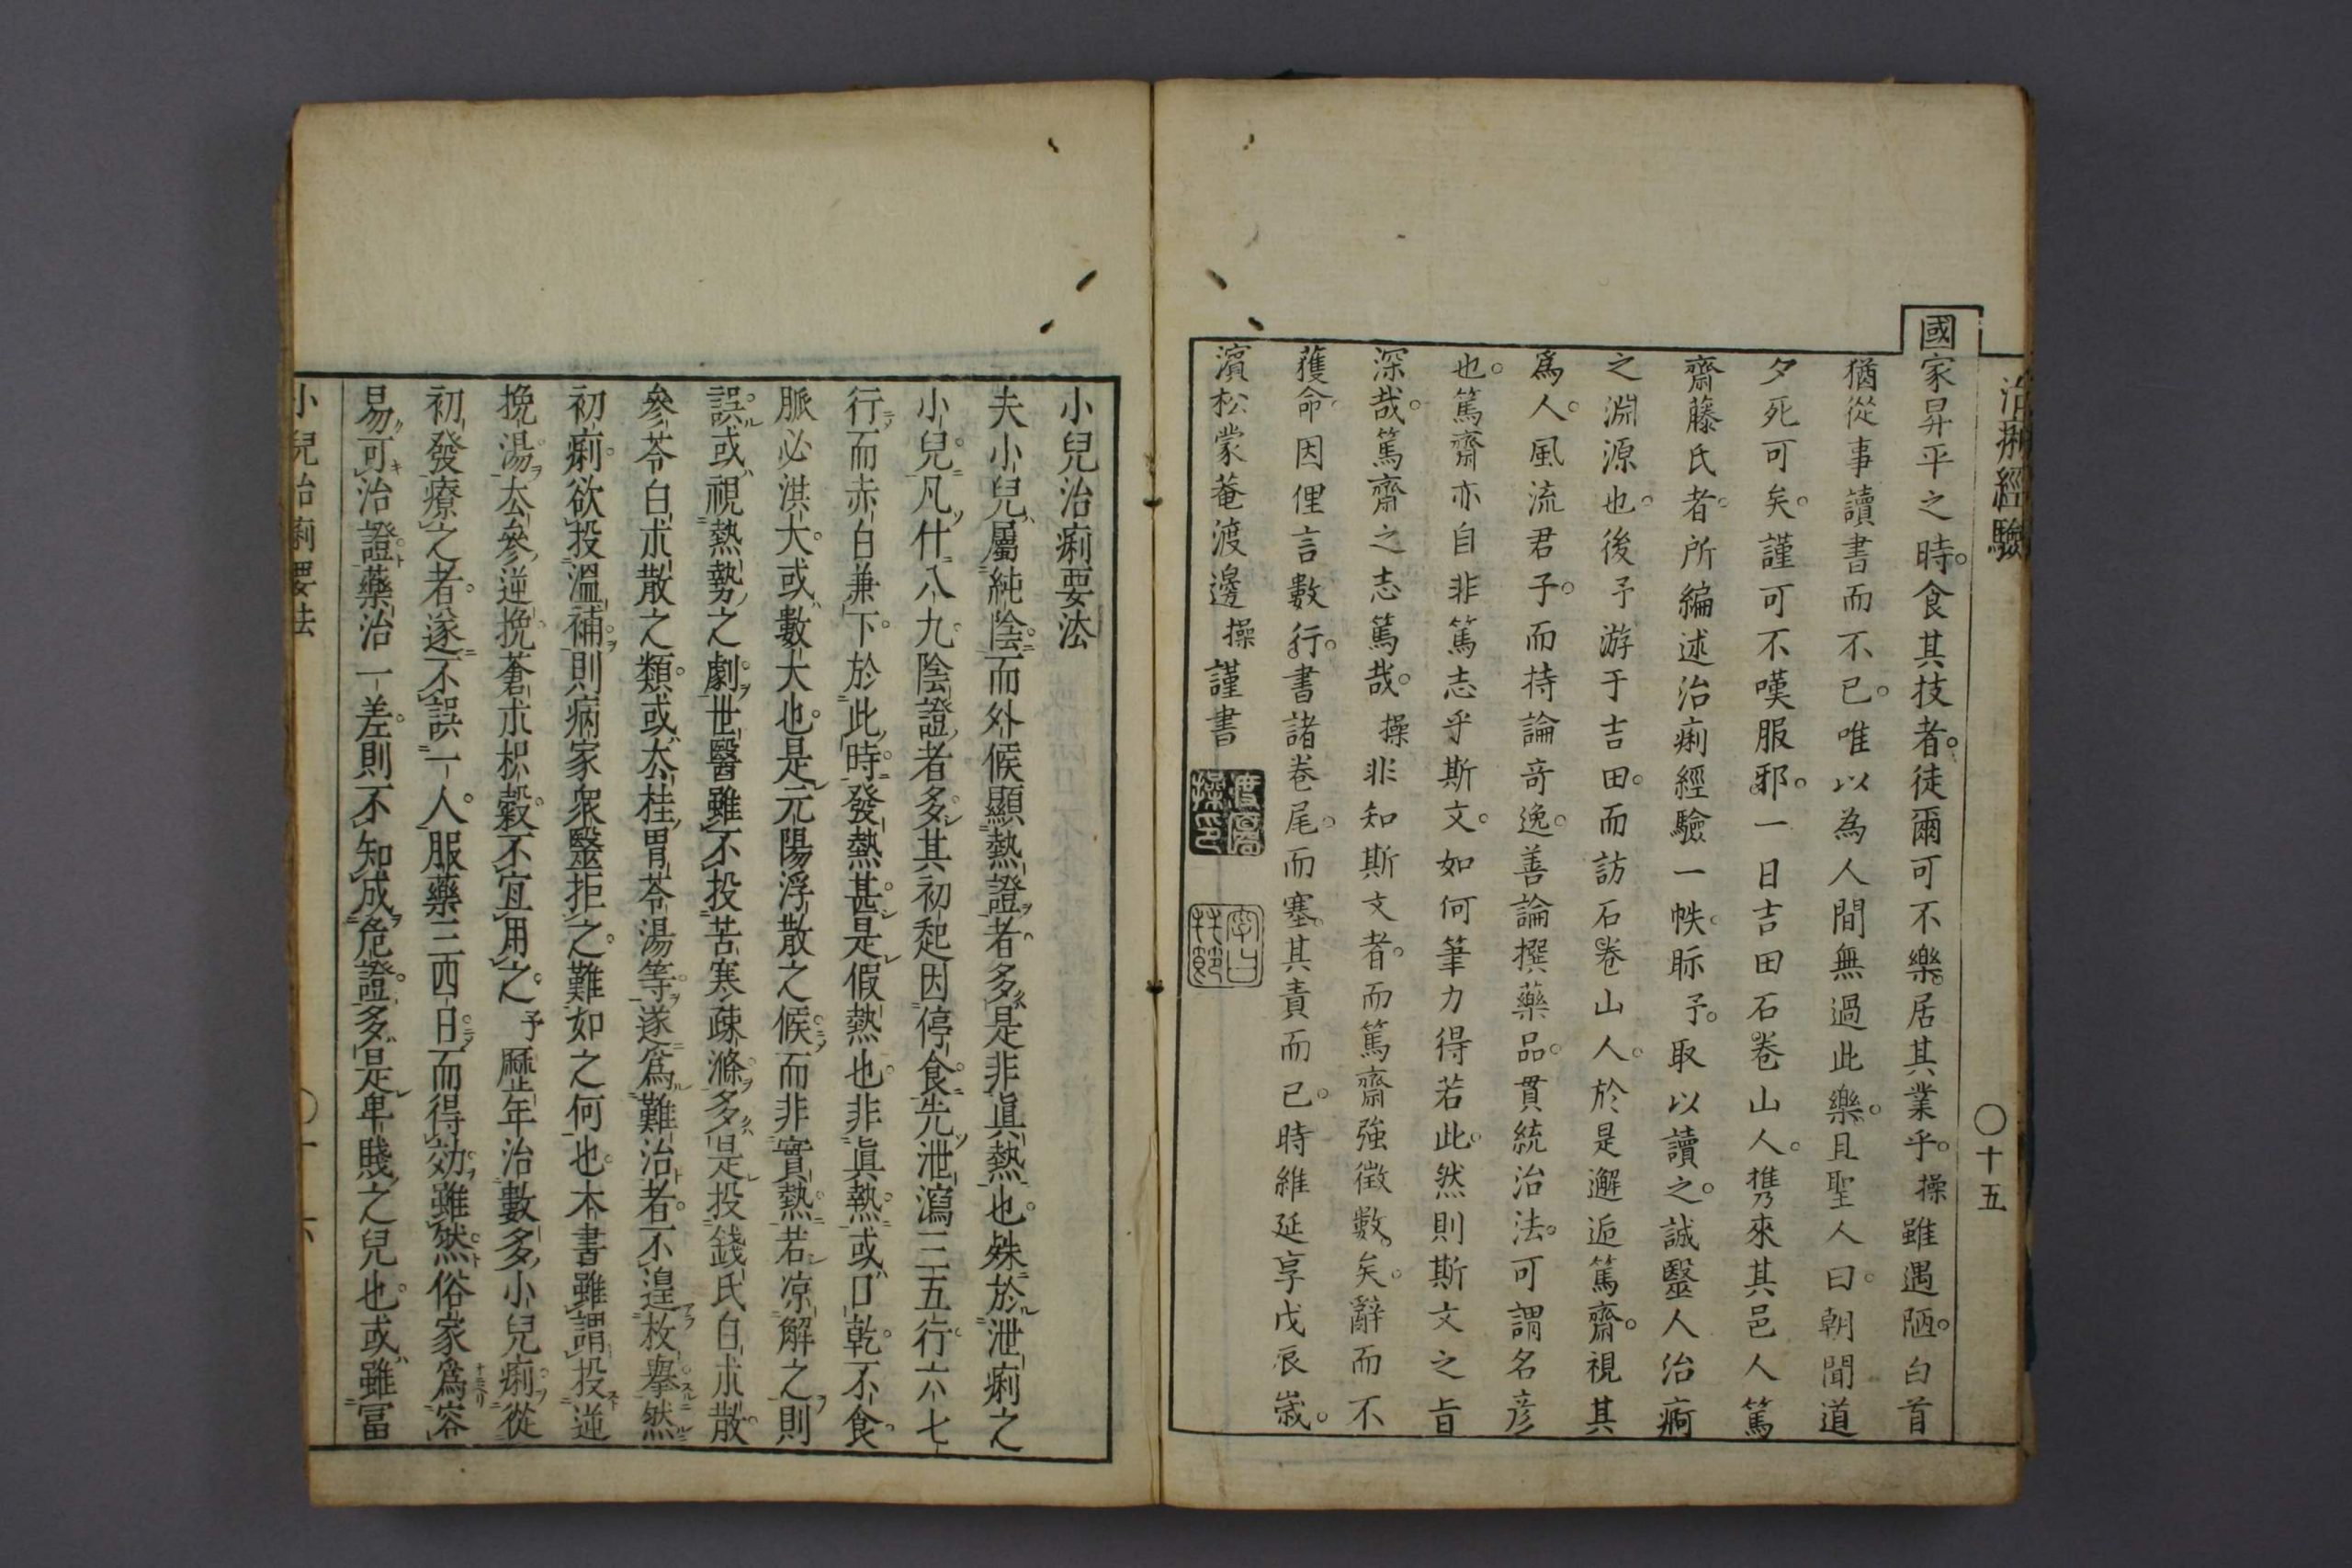 治痢經驗
〇十五
國家昇平之時。食其技者。徒爾可不樂。居其業乎。操雖遇陋。白首
猶從事讀書而不已。唯以為人間無過此樂。且聖人曰。朝聞道
夕死可矣。謹可不嘆服邪。一日吉田石卷山人。携來其邑人篤
齋藤氏者。所編述治痢經驗一帙。眎予。取以讀之。誠毉人治痾
之淵源也。後予游于吉田。而訪石卷山人。於是邂逅篤齋。視其
爲人。風流君子。而持論奇逸。善論撰藥品。貫統治法。可謂名彦
也。篤齋亦自非篤志乎斯文。如何筆力得若此。然則斯文之旨
深哉。篤齋之志篤哉。操非知斯文者。而篤齋強徵數矣。辭而不
獲命。因俚言數行。書諸卷尾。而塞其責而已。時維延享戊辰歲。
濱松蒙菴渡邊操謹書
小兒治痢要法
夫小兒屬純陰而外候顯熱證者多是非眞熱也。殊於泄痢之
小兒凡什八九陰證者多其初起因停食先泄瀉三五行六七
行而赤白兼下於此時發熱甚是假熱也非眞熱或口乾不食
脈必洪大。或數大也。是元陽浮散之候而非實熱若凉解之則
誤或視熱勢之劇世醫雖不投苦寒疎滌多是投錢氏白朮散
參苓白朮散之類或太桂胃苓湯等遂爲難治者。不遑枚擧然
初痢欲投溫補則病家衆毉拒之。難如之何也本書雖謂投逆
挽湯太參逆挽蒼朮枳殼不宜用之。予歷年治數多小兒痢從
初發療之者。遂不誤一人。服藥三四日而得効雖然俗家爲容
易可治證藥治一差則不知成危證多是卑賤之兒也。或雖冨
小兒治痢要法
〇十六